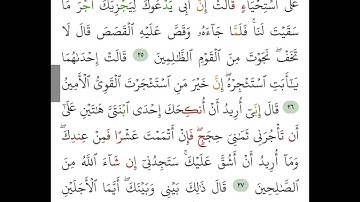 عَلَى ٱسْتِحْيَآءٍ قَالَتْ إِنَّ أَبِى يَدْعُوكَ لِيَجْزِيَكَ أَجْرَ مَا
سَقَيْتَ لَنَا ۚ فَلَمَّا جَآءَهُۥ وَقَصَّ عَلَيْهِ ٱلْقَصَصَ قَالَ لَا
تَخَفْ ۖ نَجَوْتَ مِنَ ٱلْقَوْمِ ٱلظَّٰلِمِينَ ٢٥ قَالَتْ إِحْدَىٰهُمَا
يَٰٓأَبَتِ ٱسْتَـْٔجِرْهُ ۖ إِنَّ خَيْرَ مَنِ ٱسْتَـْٔجَرْتَ ٱلْقَوِىُّ ٱلْأَمِينُ
٢٦ قَالَ إِنِّىٓ أُرِيدُ أَنْ أُنكِحَكَ إِحْدَى ٱبْنَتَىَّ هَٰتَيْنِ عَلَىٰٓ
أَن تَأْجُرَنِى ثَمَٰنِىَ حِجَجٍ ۖ فَإِنْ أَتْمَمْتَ عَشْرًا فَمِنْ عِندِكَ ۖ
وَمَآ أُرِيدُ أَنْ أَشُقَّ عَلَيْكَ ۚ سَتَجِدُنِىٓ إِن شَآءَ ٱللَّهُ مِنَ
ٱلصَّٰلِحِينَ ٢٧ قَالَ ذَٰلِكَ بَيْنِى وَبَيْنَكَ ۖ أَيَّمَا ٱلْأَجَلَيْنِ